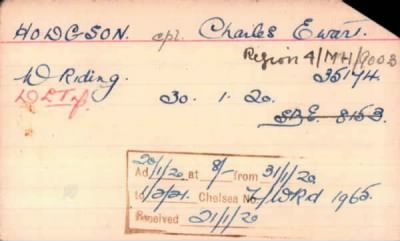 HODGSON. cpl. Charles Ewart.
Region 4/MH/9003
W Riding. 35174.
30. 1. 20.
S.B.E. 8153.
20/1/20 Ad at 8/- from 31/1/20
to 1/2/21. Chelsea No. 7/WRd 1965.
Received 21/1/20